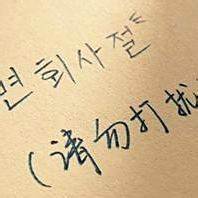 면회사절
(请勿打扰